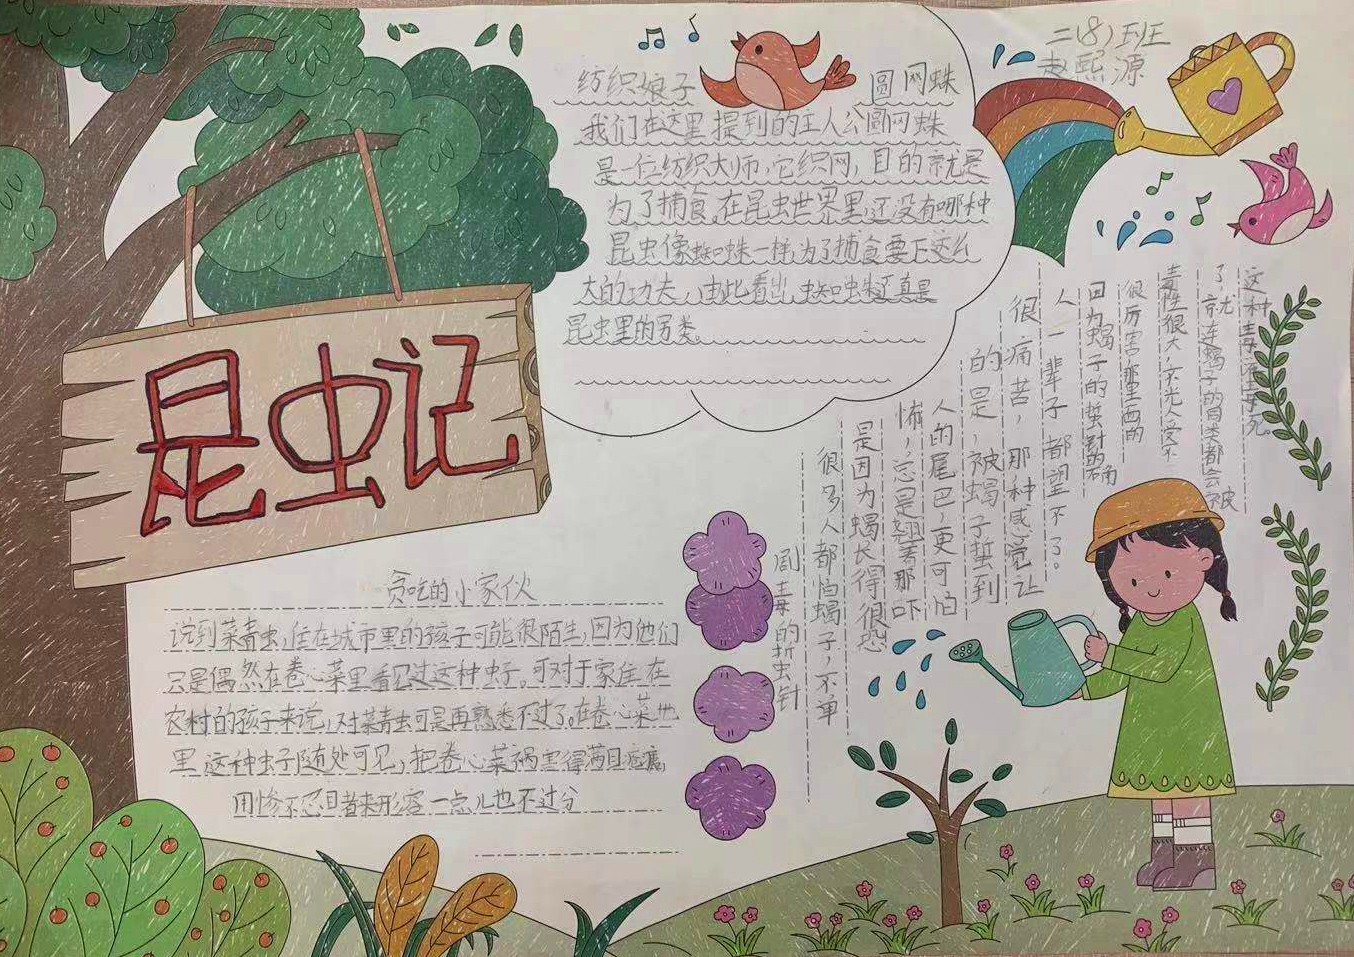 二(8)班
赵熙源
昆虫记
纺织娘子 圆网蛛
我们在这里提到的工人公圆网蛛
是一位纺织大师,它织网,目的就是
为了捕食,在昆虫世界里,还没有哪种
昆虫像蜘蛛一样为了捕食要下这么
大的功夫,由此看出,蜘蛛还真是
昆虫里的另类。
贪吃的小家伙
说到菜青虫,住在城市里的孩子可能很陌生,因为他们
只是偶然在卷心菜里看见过这种虫子。可对于家住在
农村的孩子来说,对菜青虫可是再熟悉不过了。在卷心菜地
里这种虫子随处可见,把卷心菜祸害得满目疮痍,
用惨不忍目者来形容一点儿也不过分
剧毒的折虫针
很多人都怕蝎子,不单
是因为蝎长得很恐
怖,总是翘着那吓
人的尾巴,更可怕
的是,被蝎子蜇到
很痛苦,那种感觉让
人一辈子都望不了。
因为蝎子的蜇针的确
很厉害那里面的
毒性很大,不光人受不
了就连蝎子的同类都会被
这种毒液毒死。